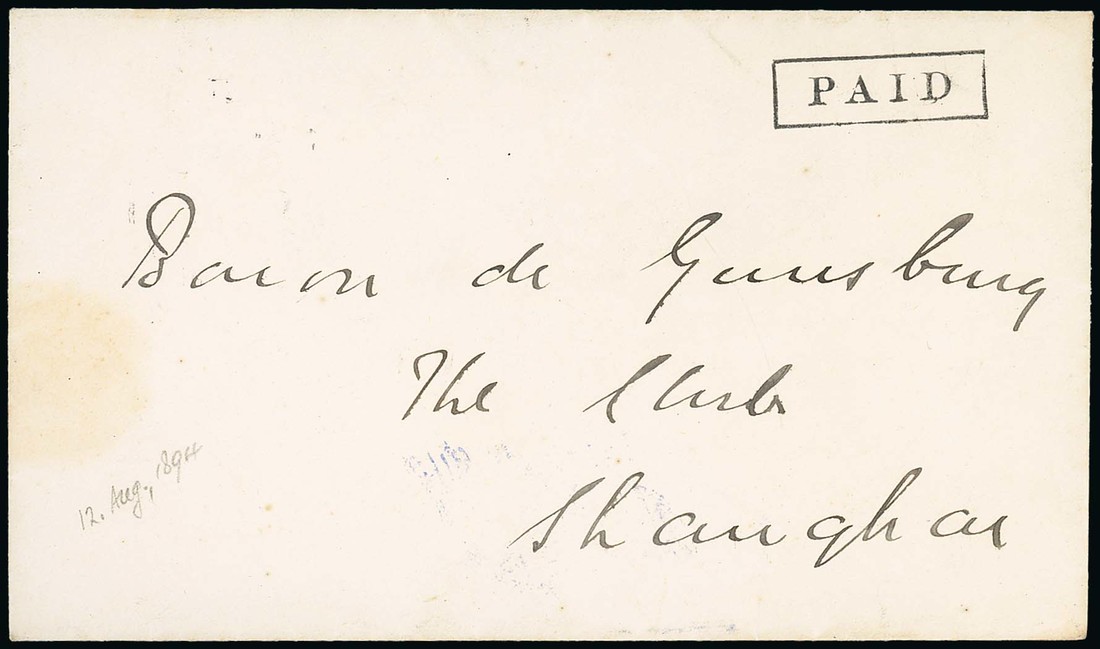 PAID
Baron de Gunsburg
The Club
Shanghai
12. Aug., 1894